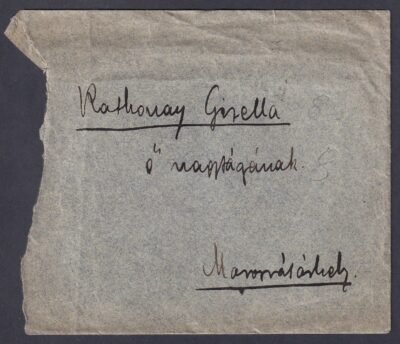 Rathonay Gizella
ő nagyságának.
Marosvásárhely.